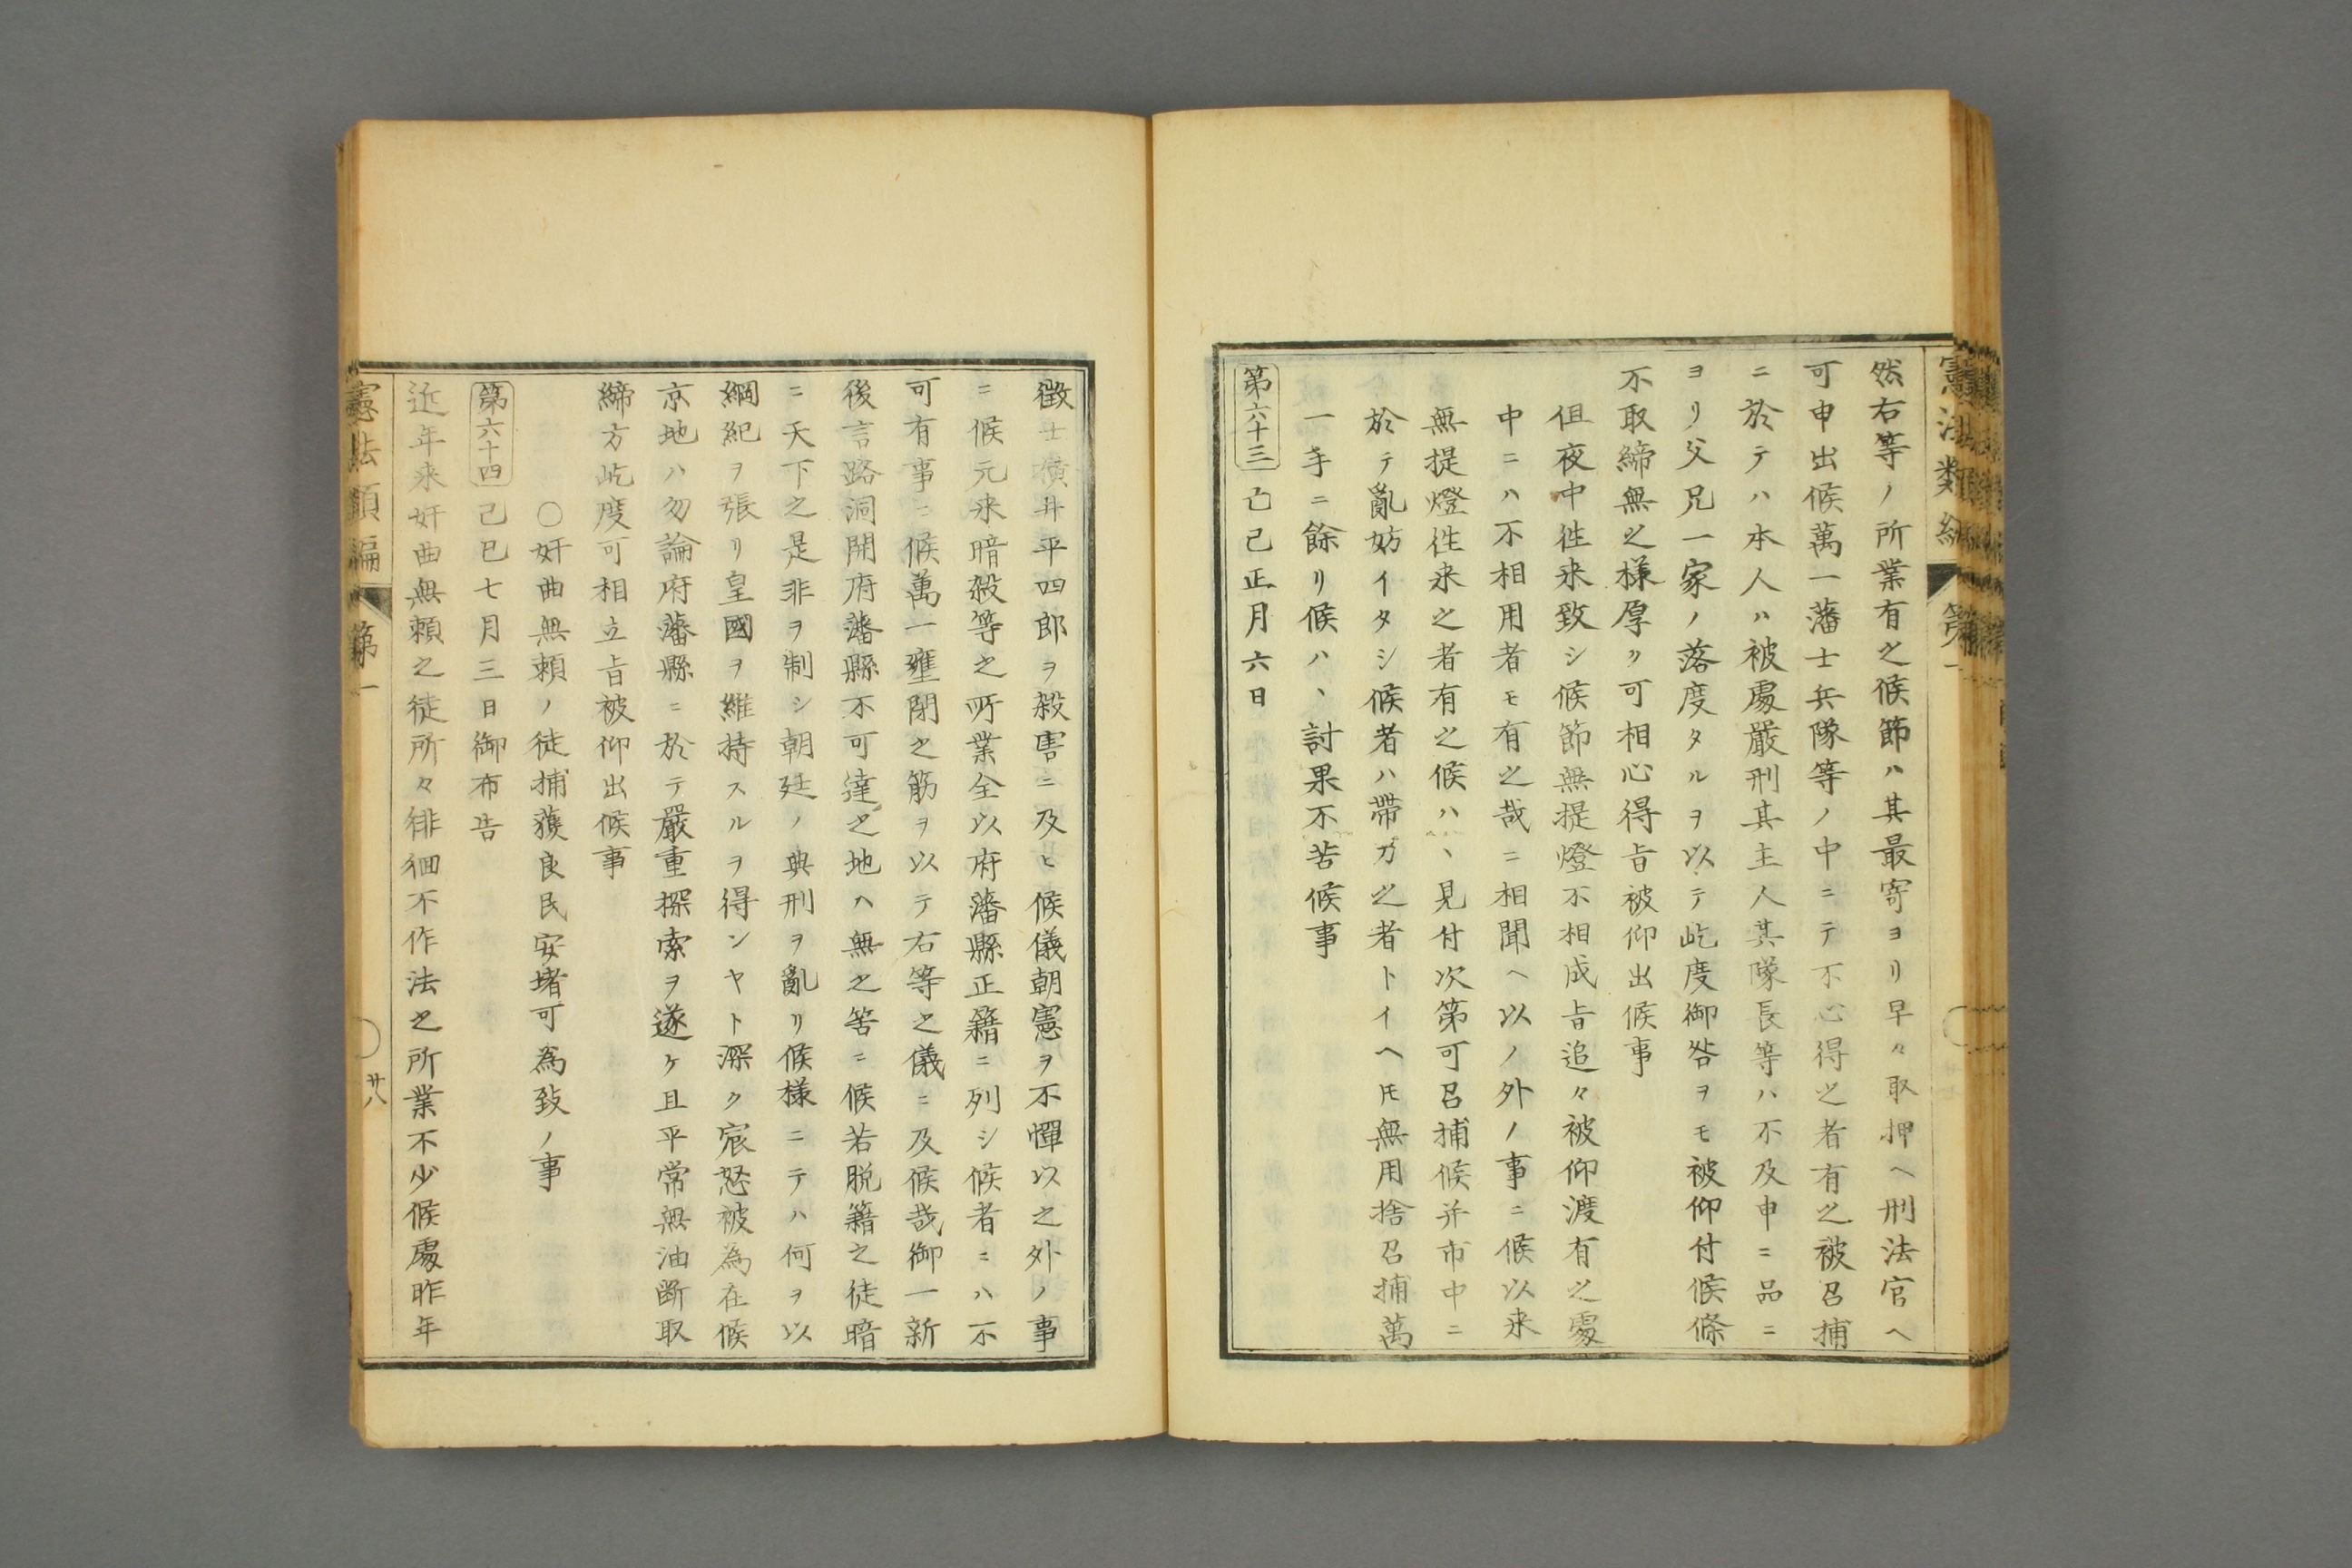 憲法類編 第一
然右等ノ所業有之候節ハ其最寄ヨリ早々取押ヘ刑法官ヘ
可申出候萬一藩士兵隊等ノ中ニテ不心得之者有之被召捕
ニ於テハ本人ハ被處嚴刑其主人其隊長等ハ不及申ニ品ニ
ヨリ父兄一家ノ落度タルヲ以テ屹度御咎ヲモ被仰付候條
不取締無之様厚ク可相心得旨被仰出候事
但夜中徃来致シ候節無提燈不相成旨追々被仰渡有之處
中ニハ不相用者モ有之哉ニ相聞ヘ以ノ外ノ事ニ候以来
無提燈徃来之者有之候ハヽ見付次第可召捕候并市中ニ
於テ亂妨イタシ候者ハ帶刀之者トイヘ𪜈無用捨召捕萬
一手ニ餘リ候ハヽ討果不苦候事
第六十三 己巳正月六日
徴士横井平四郎ヲ殺害ニ及ヒ候儀朝憲ヲ不憚以之外ノ事
ニ候元来暗殺等之所業全以府藩縣正籍ニ列シ候者ニハ不
可有事ニ候萬一壅閉之筋ヲ以テ右等之儀ニ及候哉御一新
後言路洞開府藩縣不可達之地ハ無之筈ニ候若脱籍之徒暗
ニ天下之是非ヲ制シ朝廷ノ典刑ヲ亂リ候様ニテハ何ヲ以
綱紀ヲ張リ皇國ヲ維持スルヲ得ンヤト深ク宸怒被為在候
京地ハ勿論府藩縣ニ於テ嚴重探索ヲ遂ケ且平常無油断取
締方屹度可相立旨被仰出候事
○奸曲無頼ノ徒捕獲良民安堵可為致ノ事
第六十四 己巳七月三日御布告
近年来奸曲無頼之徒所々徘徊不作法之所業不少候處昨年
憲法類編 第一 廿八